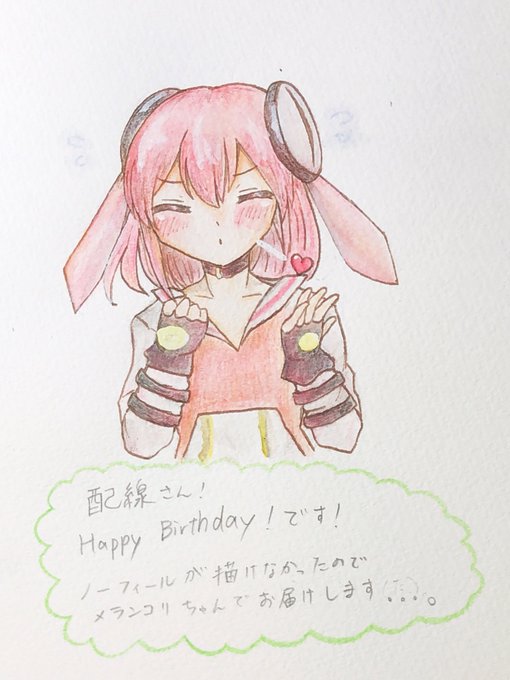 配線さん!
Happy Birthday!です!
ノーフィールが描けなかったので
メランコリちゃんでお届けします...。